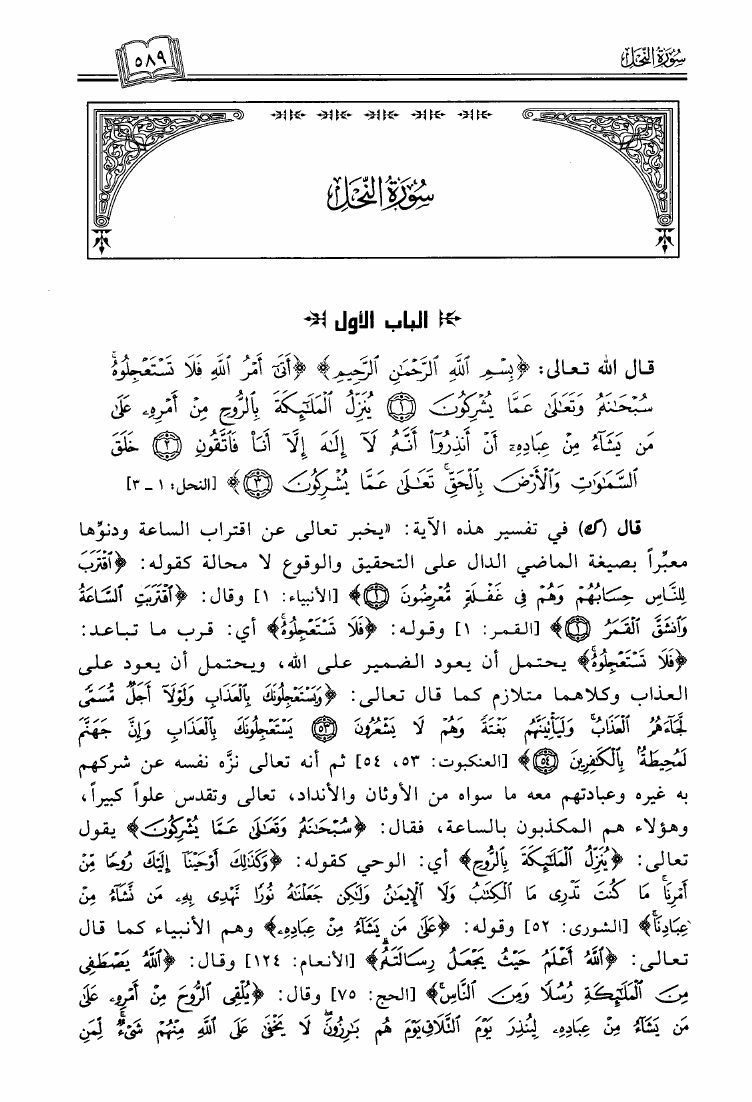 سُورَةُ النَّحْلِ
٥٨٩
سُورَةُ النَّحْلِ
الباب الأول
قال الله تعالى: ﴿بِسْمِ ٱللَّهِ ٱلرَّحْمَٰنِ ٱلرَّحِيمِ﴾ ﴿أَتَىٰٓ أَمْرُ ٱللَّهِ فَلَا تَسْتَعْجِلُوهُ ۚ
سُبْحَٰنَهُۥ وَتَعَٰلَىٰ عَمَّا يُشْرِكُونَ ۝١ يُنَزِّلُ ٱلْمَلَٰٓئِكَةَ بِٱلرُّوحِ مِنْ أَمْرِهِۦ عَلَىٰ
مَن يَشَآءُ مِنْ عِبَادِهِۦٓ أَنْ أَنذِرُوٓا۟ أَنَّهُۥ لَآ إِلَٰهَ إِلَّآ أَنَا۠ فَٱتَّقُونِ ۝٢ خَلَقَ
ٱلسَّمَٰوَٰتِ وَٱلْأَرْضَ بِٱلْحَقِّ ۚ تَعَٰلَىٰ عَمَّا يُشْرِكُونَ ۝٣﴾ [النحل: ١ ـ ٣]
قال (ك) في تفسير هذه الآية: «يخبر تعالى عن اقتراب الساعة ودنوّها
معبّراً بصيغة الماضي الدال على التحقيق والوقوع لا محالة كقوله: ﴿ٱقْتَرَبَ
لِلنَّاسِ حِسَابُهُمْ وَهُمْ فِى غَفْلَةٍ مُّعْرِضُونَ ۝١﴾ [الأنبياء: ١] وقال: ﴿ٱقْتَرَبَتِ ٱلسَّاعَةُ
وَٱنشَقَّ ٱلْقَمَرُ ۝١﴾ [القمر: ١] وقوله: ﴿فَلَا تَسْتَعْجِلُوهُ ۚ﴾ أي: قرب ما تباعد:
﴿فَلَا تَسْتَعْجِلُوهُ ۚ﴾ يحتمل أن يعود الضمير على الله، ويحتمل أن يعود على
العذاب وكلاهما متلازم كما قال تعالى: ﴿وَيَسْتَعْجِلُونَكَ بِٱلْعَذَابِ ۚ وَلَوْلَآ أَجَلٌ مُّسَمًّى
لَّجَآءَهُمُ ٱلْعَذَابُ وَلَيَأْتِيَنَّهُم بَغْتَةً وَهُمْ لَا يَشْعُرُونَ ۝٥٣ يَسْتَعْجِلُونَكَ بِٱلْعَذَابِ وَإِنَّ جَهَنَّمَ
لَمُحِيطَةٌۢ بِٱلْكَٰفِرِينَ ۝٥٤﴾ [العنكبوت: ٥٣، ٥٤] ثم أنه تعالى نزّه نفسه عن شركهم
به غيره وعبادتهم معه ما سواه من الأوثان والأنداد، تعالى وتقدس علواً كبيراً،
وهؤلاء هم المكذبون بالساعة، فقال: ﴿سُبْحَٰنَهُۥ وَتَعَٰلَىٰ عَمَّا يُشْرِكُونَ﴾ يقول
تعالى: ﴿يُنَزِّلُ ٱلْمَلَٰٓئِكَةَ بِٱلرُّوحِ﴾ أي: الوحي كقوله: ﴿وَكَذَٰلِكَ أَوْحَيْنَآ إِلَيْكَ رُوحًا مِّنْ
أَمْرِنَا ۚ مَا كُنتَ تَدْرِى مَا ٱلْكِتَٰبُ وَلَا ٱلْإِيمَٰنُ وَلَٰكِن جَعَلْنَٰهُ نُورًا نَّهْدِى بِهِۦ مَن نَّشَآءُ مِنْ
عِبَادِنَا ۚ﴾ [الشورى: ٥٢] وقوله: ﴿عَلَىٰ مَن يَشَآءُ مِنْ عِبَادِهِۦ﴾ وهم الأنبياء كما قال
تعالى: ﴿ٱللَّهُ أَعْلَمُ حَيْثُ يَجْعَلُ رِسَالَتَهُۥ ۗ﴾ [الأنعام: ١٢٤] وقال: ﴿ٱللَّهُ يَصْطَفِى
مِنَ ٱلْمَلَٰٓئِكَةِ رُسُلًا وَمِنَ ٱلنَّاسِ ۚ﴾ [الحج: ٧٥] وقال: ﴿يُلْقِى ٱلرُّوحَ مِنْ أَمْرِهِۦ عَلَىٰ
مَن يَشَآءُ مِنْ عِبَادِهِۦ لِيُنذِرَ يَوْمَ ٱلتَّلَاقِ يَوْمَ هُم بَٰرِزُونَ ۖ لَا يَخْفَىٰ عَلَى ٱللَّهِ مِنْهُمْ شَىْءٌ ۚ لِّمَنِ